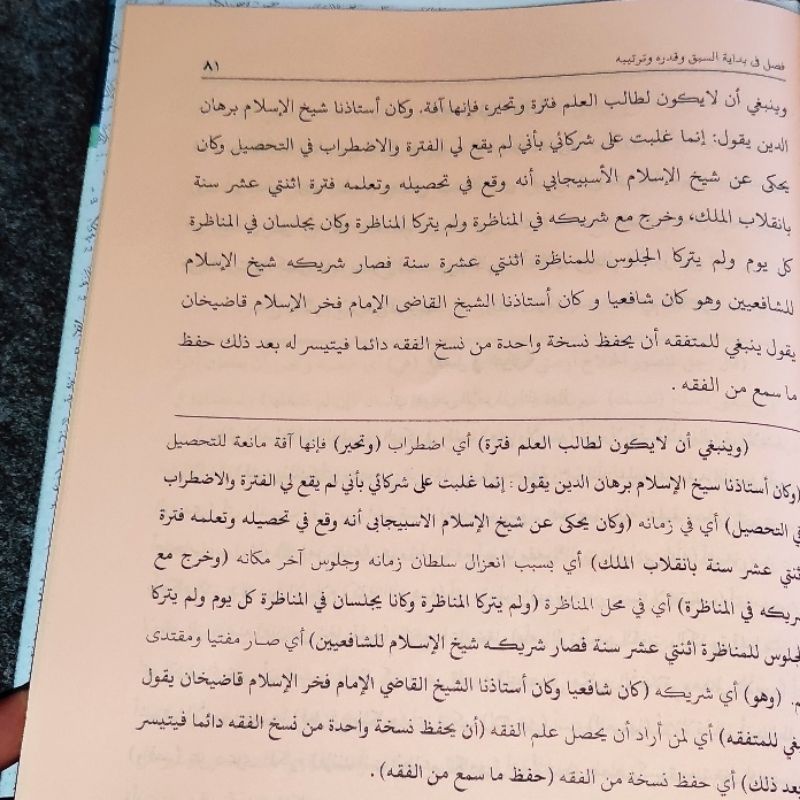 فصل في بداية السبق وقدره وترتيبه ٨١
وينبغي أن لايكون لطالب العلم فترة وتحير، فإنها آفة. وكان أستاذنا شيخ الإسلام برهان
الدين يقول: إنما غلبت على شركائي بأني لم يقع لي الفترة والاضطراب في التحصيل وكان
يحكى عن شيخ الإسلام الأسبيجابي أنه وقع في تحصيله وتعلمه فترة اثنتي عشر سنة
بانقلاب الملك، وخرج مع شريكه في المناظرة ولم يتركا المناظرة وكان يجلسان في المناظرة
كل يوم ولم يتركا الجلوس للمناظرة اثنتي عشرة سنة فصار شريكه شيخ الإسلام
للشافعيين وهو كان شافعيا و كان أستاذنا الشيخ القاضى الإمام فخر الإسلام قاضيخان
يقول ينبغي للمتفقه أن يحفظ نسخة واحدة من نسخ الفقه دائما فيتيسر له بعد ذلك حفظ
ما سمع من الفقه .
(وينبغي أن لايكون لطالب العلم فترة) أي اضطراب (وتحير) فإنها آفة مانعة للتحصيل
(وكان أستاذنا سيخ الإسلام برهان الدين يقول : إنما غلبت على شركائي بأني لم يقع لي الفترة والاضطراب
في التحصيل) أي في زمانه (وكان يحكى عن شيخ الإسلام الاسبيجابى أنه وقع في تحصيله وتعلمه فترة
اثنتي عشر سنة بانقلاب الملك) أي بسبب انعزال سلطان زمانه وجلوس آخر مكانه (وخرج مع
شريكه في المناظرة) أي في محل المناظرة (ولم يتركا المناظرة وكانا يجلسان في المناظرة كل يوم ولم يتركا
الجلوس للمناظرة اثنتي عشر سنة فصار شريكه شيخ الإسلام للشافعيين) أي صار مفتيا ومقتدى
(وهو) أي شريكه (كان شافعيا وكان أستاذنا الشيخ القاضي الإمام فخر الإسلام قاضيخان يقول
ينبغي للمتفقه) أي لمن أراد أن يحصل علم الفقه (أن يحفظ نسخة واحدة من نسخ الفقه دائما فيتيسر
بعد ذلك) أي حفظ نسخة من الفقه (حفظ ما سمع من الفقه) .